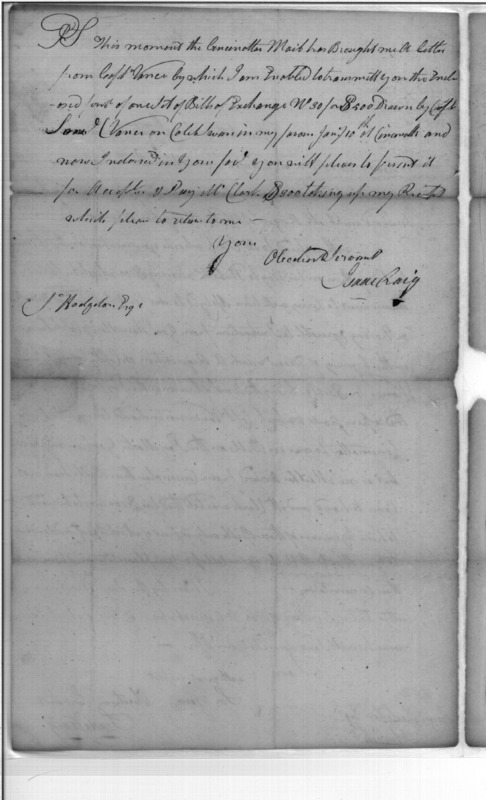 PS This moment the Cincinnatta Mail has Brought me A letter
from Capt Vance by which I am Enabled to transmitt you the Encl-
-osed first of one Set of Bills of Exchange No 30 for $500 Drawn by Capt
Saml C Vance on Caleb Swan in my favor Jany 10th at Cincinnatti and
now Indorsed in Your favr you will please to present it
for Acceptce & Pay Mr Clark $500 taking up my Receipt
which please to return to me —
Your
Obedient Servant
Isaac Craig
Sl Hodgdon Esqr